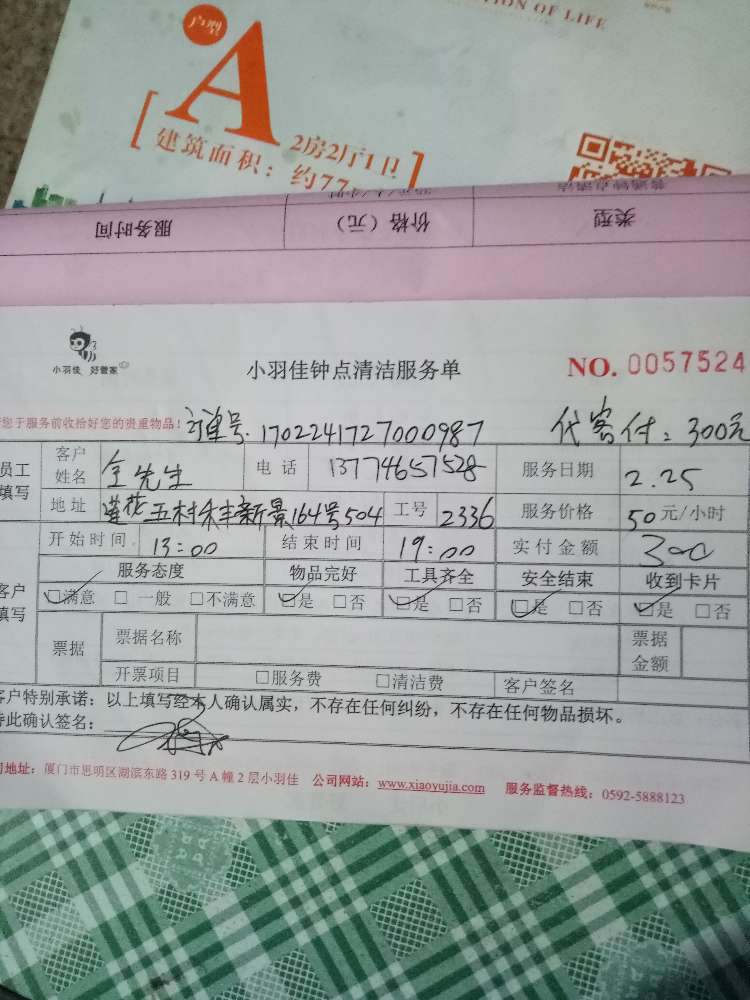 ION OF LIFE
户型
A
2房2厅1卫
建筑面积：约77
类型 价格（元） 服务时间
小羽佳 好管家
小羽佳钟点清洁服务单
NO. 0057524
您于服务前收拾好您的贵重物品！
订单号：1702241727000987
代客付：300元
员工填写
客户姓名 全先生 电话 13774657528 服务日期 2.25
地址 莲花五村禾丰新景164号504 工号 2336 服务价格 50元/小时
开始时间 13:00 结束时间 19:00 实付金额 300
客户填写
服务态度 物品完好 工具齐全 安全结束 收到卡片
☑满意 □一般 □不满意 ☑是 □否 ☑是 □否 ☑是 □否 ☑是 □否
票据 票据名称 票据金额
开票项目 □服务费 □清洁费 客户签名
客户特别承诺：以上填写经本人确认属实，不存在任何纠纷，不存在任何物品损坏。
特此确认签名：
司地址：厦门市思明区湖滨东路319号A幢2层小羽佳 公司网站：www.xiaoyujia.com 服务监督热线：0592-5888123